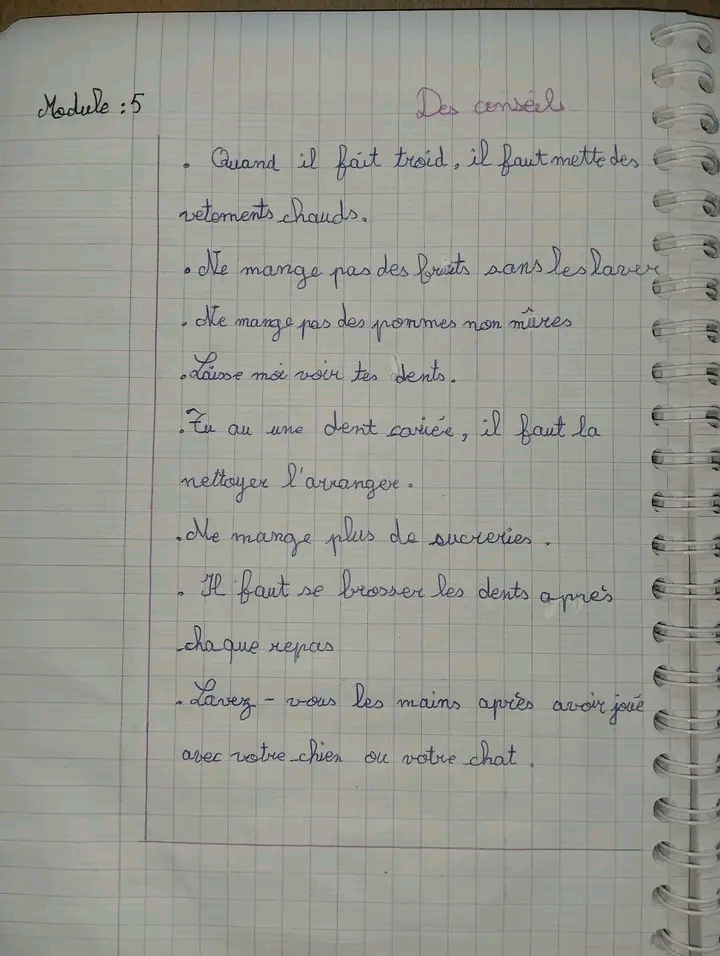 Module : 5
Des conseils
. Quand il fait troid, il faut mette des
vetements chauds.
. Ne mange pas des fruits sans les laver
. Ne mange pas des pommes non mûres
. Laisse moi voir tes dents.
. Tu au une dent cariée, il faut la
nettoyer l'arranger.
. Ne mange plus de sucreries.
. Il faut se brosser les dents après
chaque repas
. Lavez-vous les mains après avoir joué
avec votre chien ou votre chat.